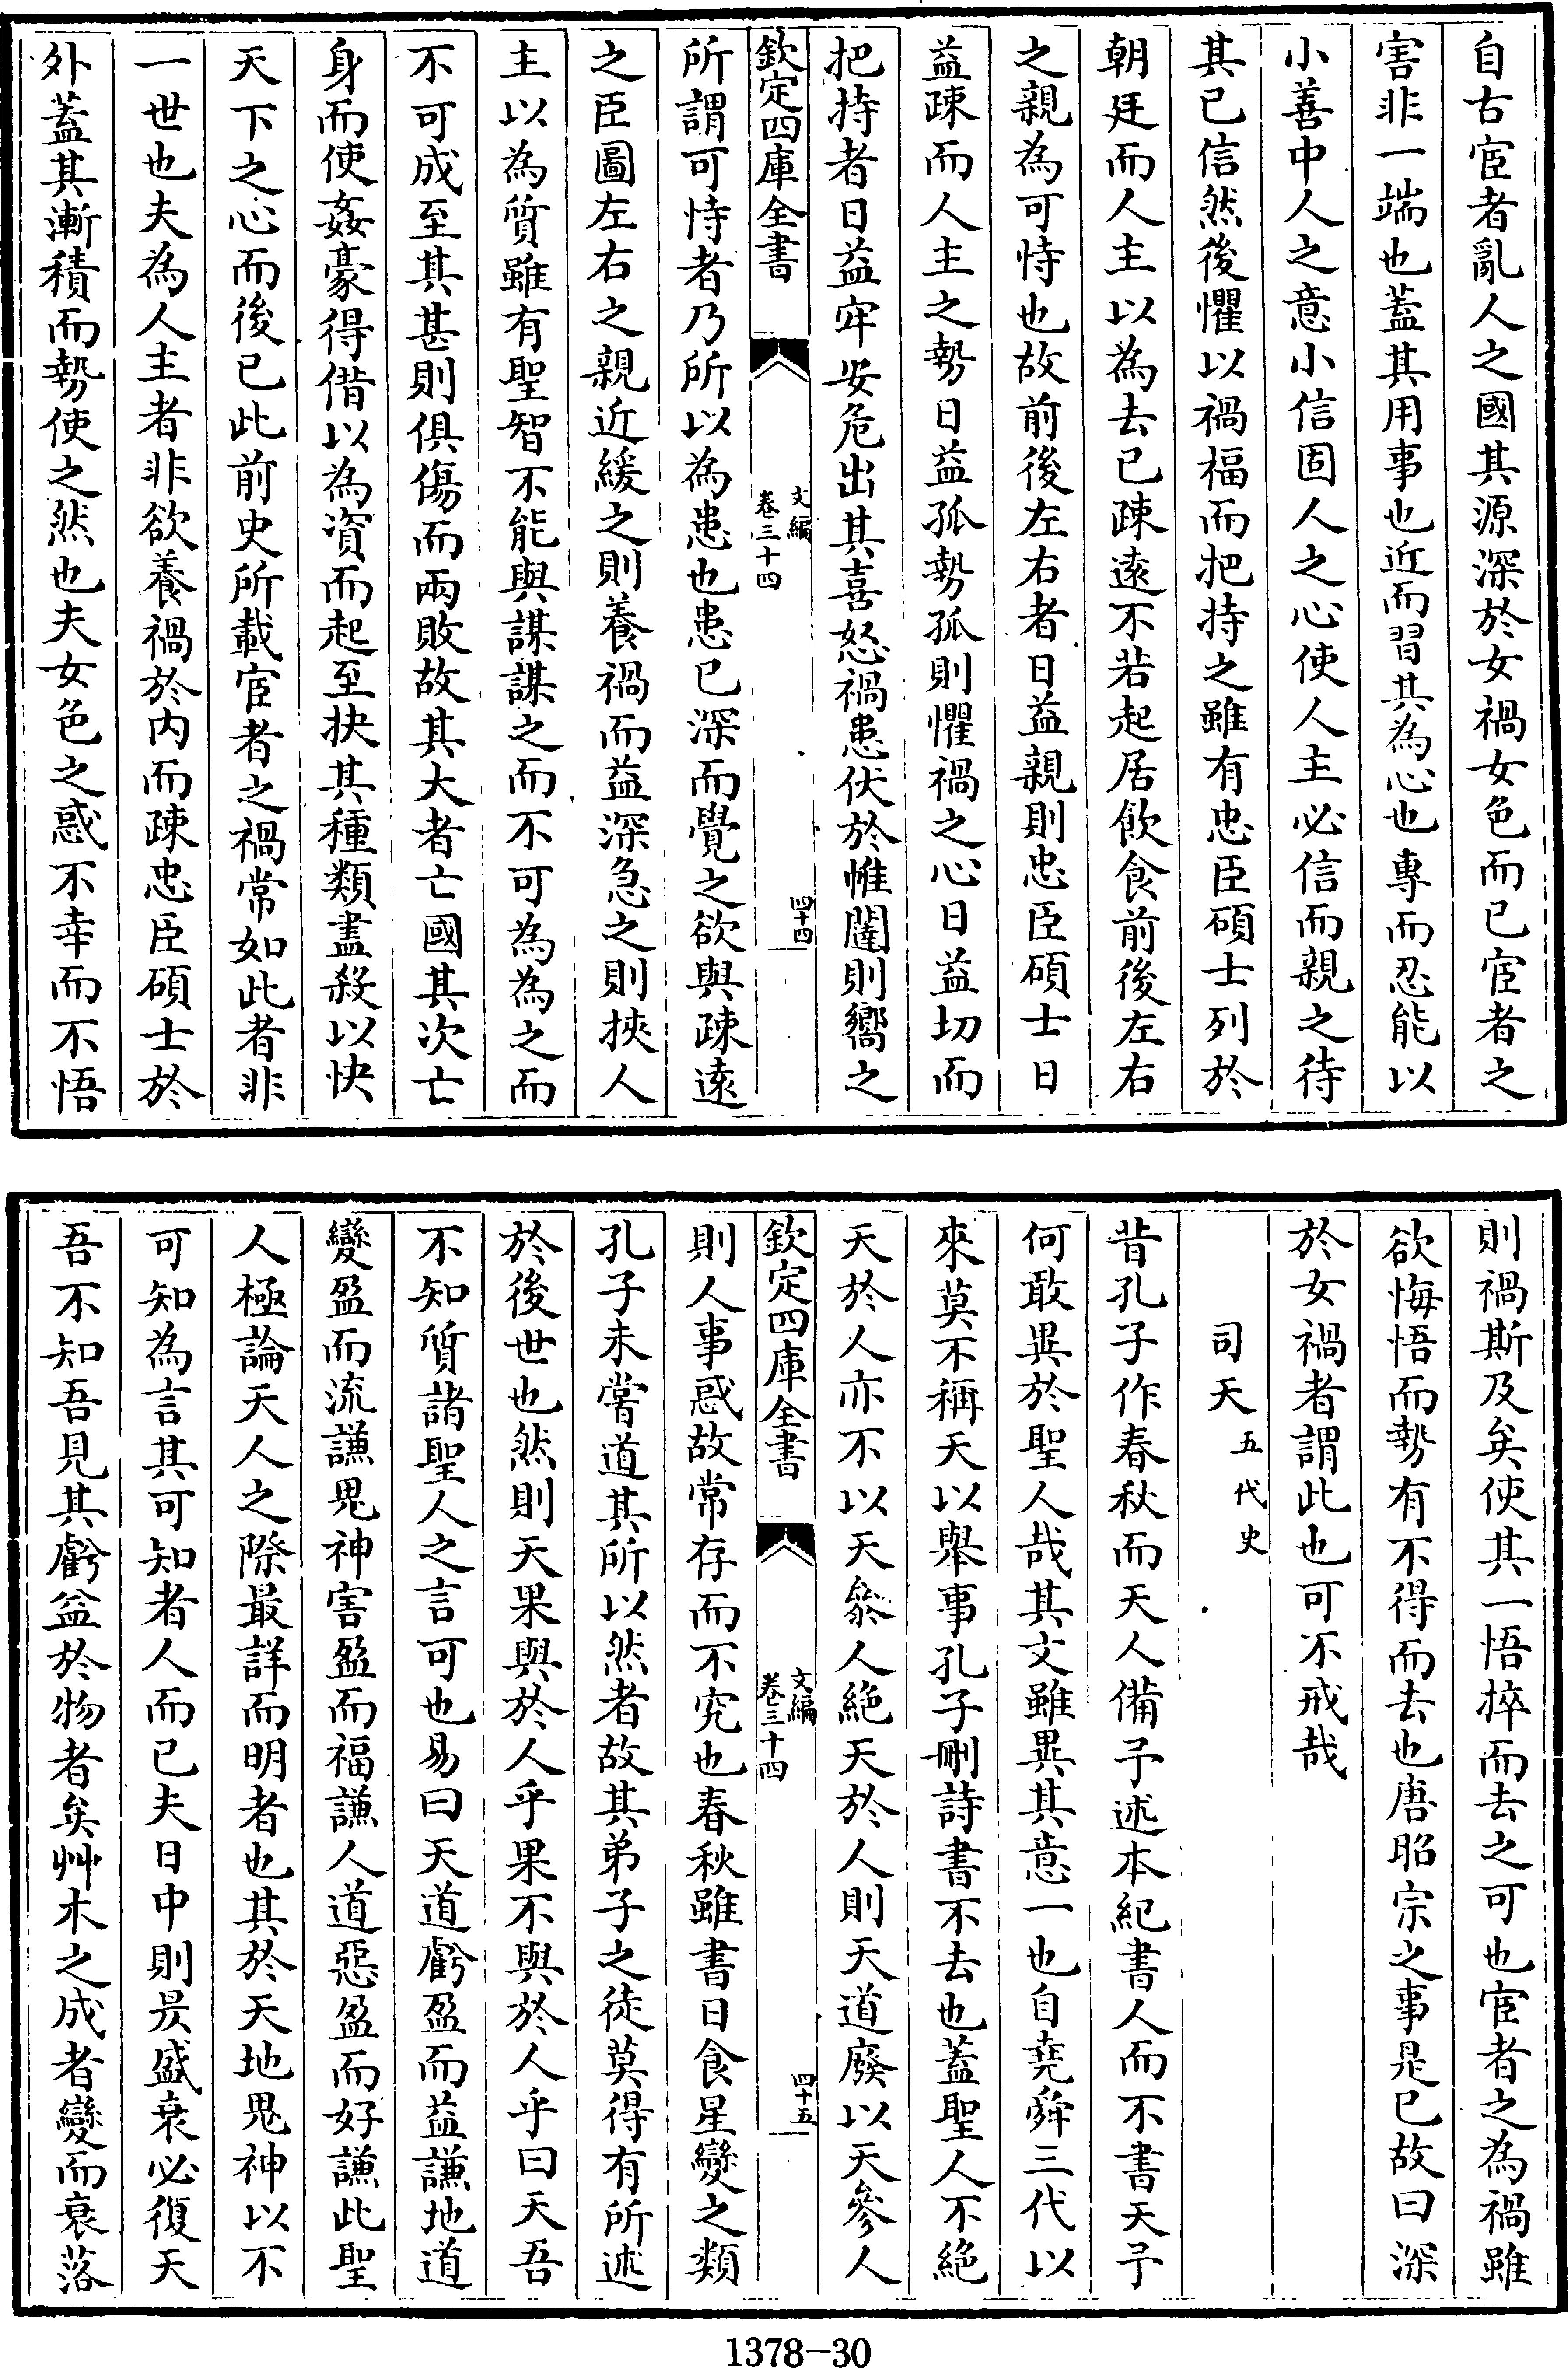 自古宦者亂人之國其源深於女禍女色而已宦者之
害非一端也蓋其用事也近而習其為心也專而忍能以
小善中人之意小信固人之心使人主必信而親之待
其已信然後懼以禍福而把持之雖有忠臣碩士列於
朝廷而人主以為去已疎遠不若起居飲食前後左右
之親為可恃也故前後左右者日益親則忠臣碩士日
益疎而人主之勢日益孤勢孤則懼禍之心日益切而
把持者日益牢安危出其喜怒禍患伏於帷闥則嚮之
欽定四庫全書
文編
卷三十四
四十四
所謂可恃者乃所以為患也患已深而覺之欲與疎遠
之臣圖左右之親近緩之則養禍而益深急之則挾人
主以為質雖有聖智不能與謀謀之而不可為為之而
不可成至其甚則俱傷而兩敗故其大者亡國其次亡
身而使姦豪得借以為資而起至抉其種類盡殺以快
天下之心而後已此前史所載宦者之禍常如此者非
一世也夫為人主者非欲養禍於內而疎忠臣碩士於
外蓋其漸積而勢使之然也夫女色之惑不幸而不悟
則禍斯及矣使其一悟捽而去之可也宦者之為禍雖
欲悔悟而勢有不得而去也唐昭宗之事是已故曰深
於女禍者謂此也可不戒哉
司天五代史
昔孔子作春秋而天人備予述本紀書人而不書天予
何敢異於聖人哉其文雖異其意一也自堯舜三代以
來莫不稱天以舉事孔子刪詩書不去也蓋聖人不絕
天於人亦不以天叅人絕天於人則天道廢以天參人
欽定四庫全書
文編
卷三十四
四十五
則人事惑故常存而不究也春秋雖書日食星變之類
孔子未嘗道其所以然者故其弟子之徒莫得有所述
於後世也然則天果與於人乎果不與於人乎曰天吾
不知質諸聖人之言可也易曰天道虧盈而益謙地道
變盈而流謙鬼神害盈而福謙人道惡盈而好謙此聖
人極論天人之際最詳而明者也其於天地鬼神以不
可知為言其可知者人而已夫日中則昃盛衰必復天
吾不知吾見其虧益於物者矣艸木之成者變而衰落
1378-30